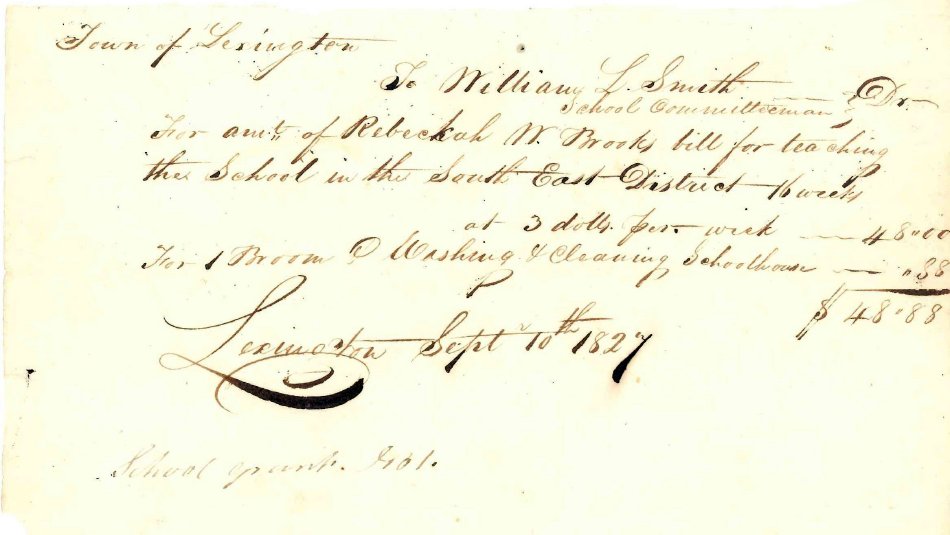 Town of Lexington
To William L. Smith Dr.
School Committeeman
For amt. of Rebeckah W. Brooks bill for teaching
the School in the South East District 16 weeks
at 3 dolls. per. week — 48.00
For 1 Broom & Washing & Cleaning Schoolhouse — .88
$ 48.88
Lexington Sept. 10th 1827
School grant.